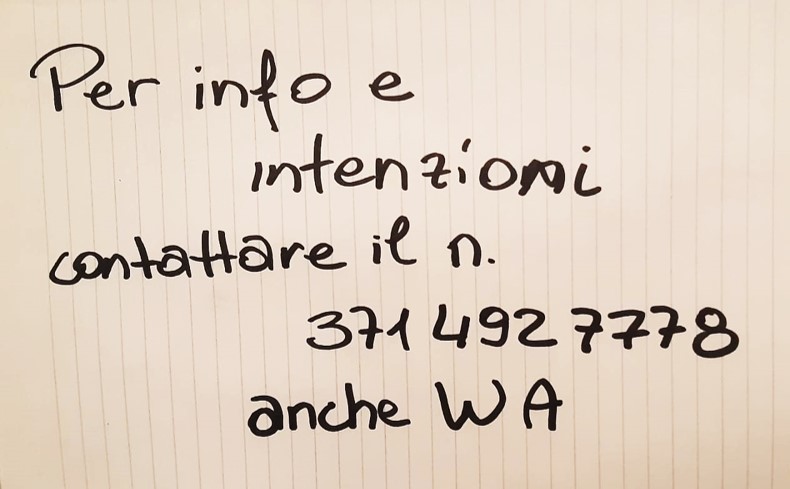 Per info e
intenzioni
contattare il n.
371 492 7778
anche WA